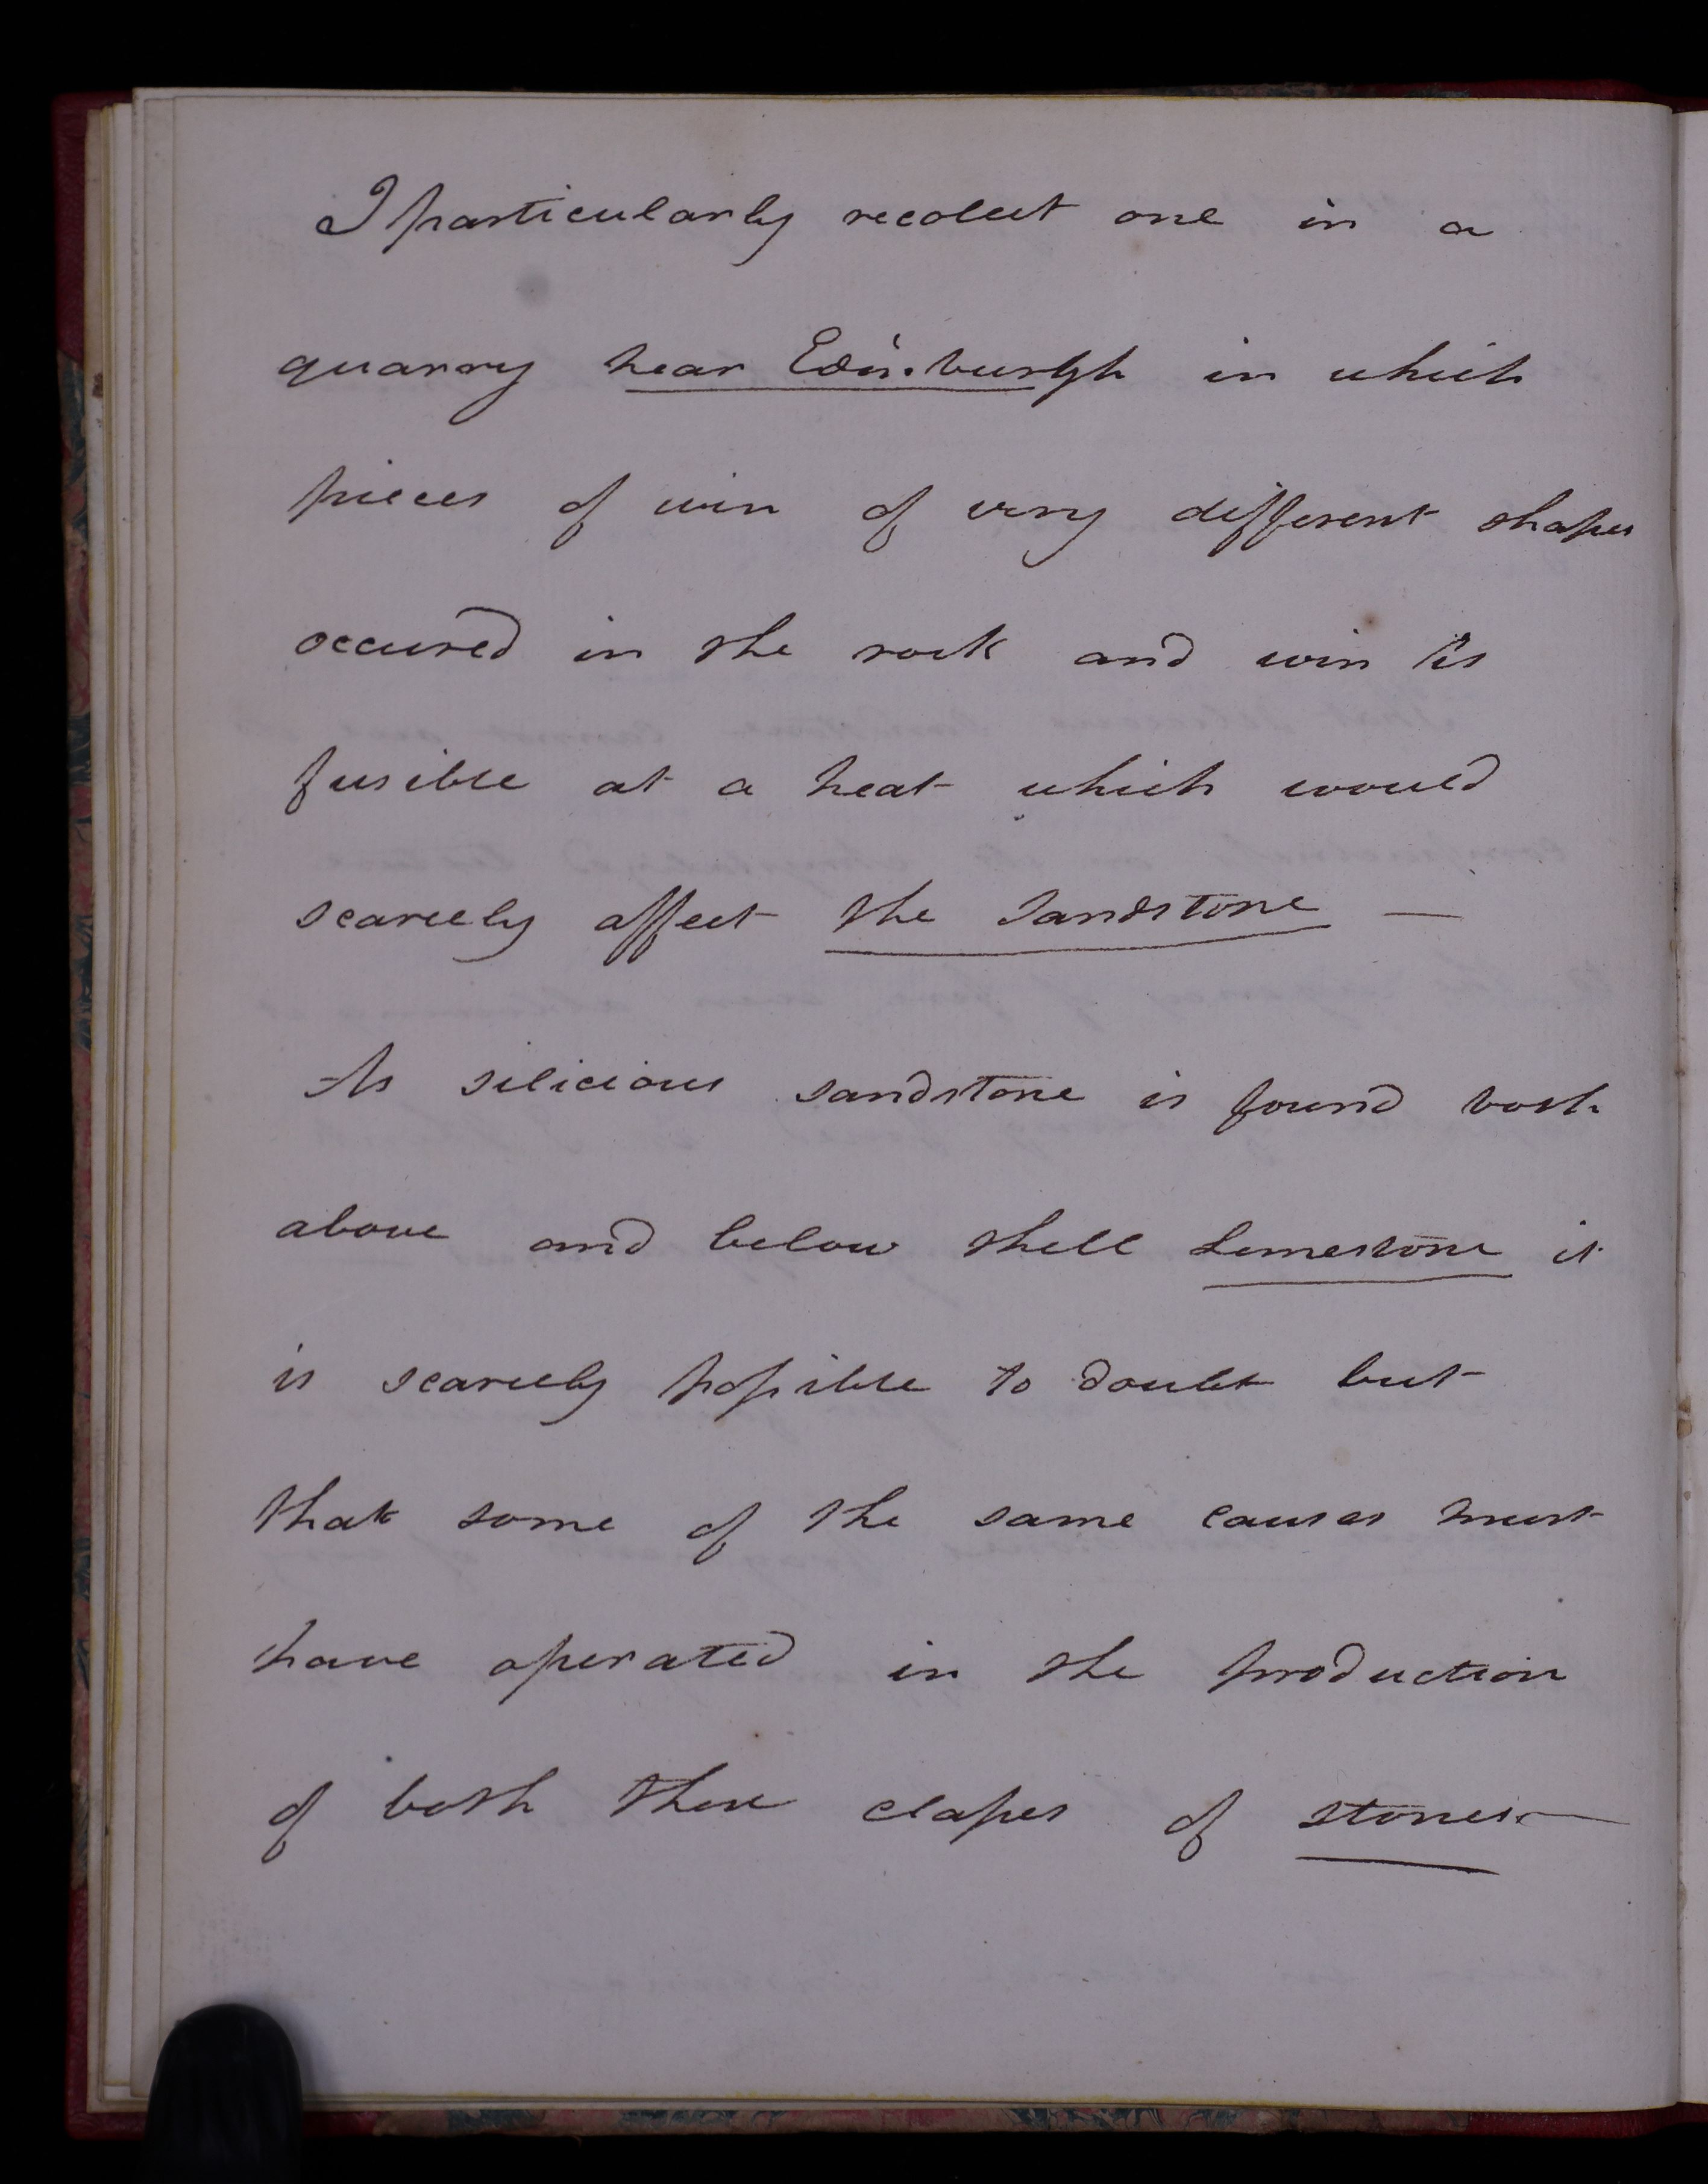 I particularly recolect one in a
quarry near Edinburgh in which
pieces of iron of very different shapes
occured in the rock and iron is
fusible at a heat which would
scarcely affect the Sandstone —
As silicious sandstone is found both
above and below shell Limestone it
is scarcely possible to doubt but
that some of the same causes must
have operated in the production
of both these classes of stones. —